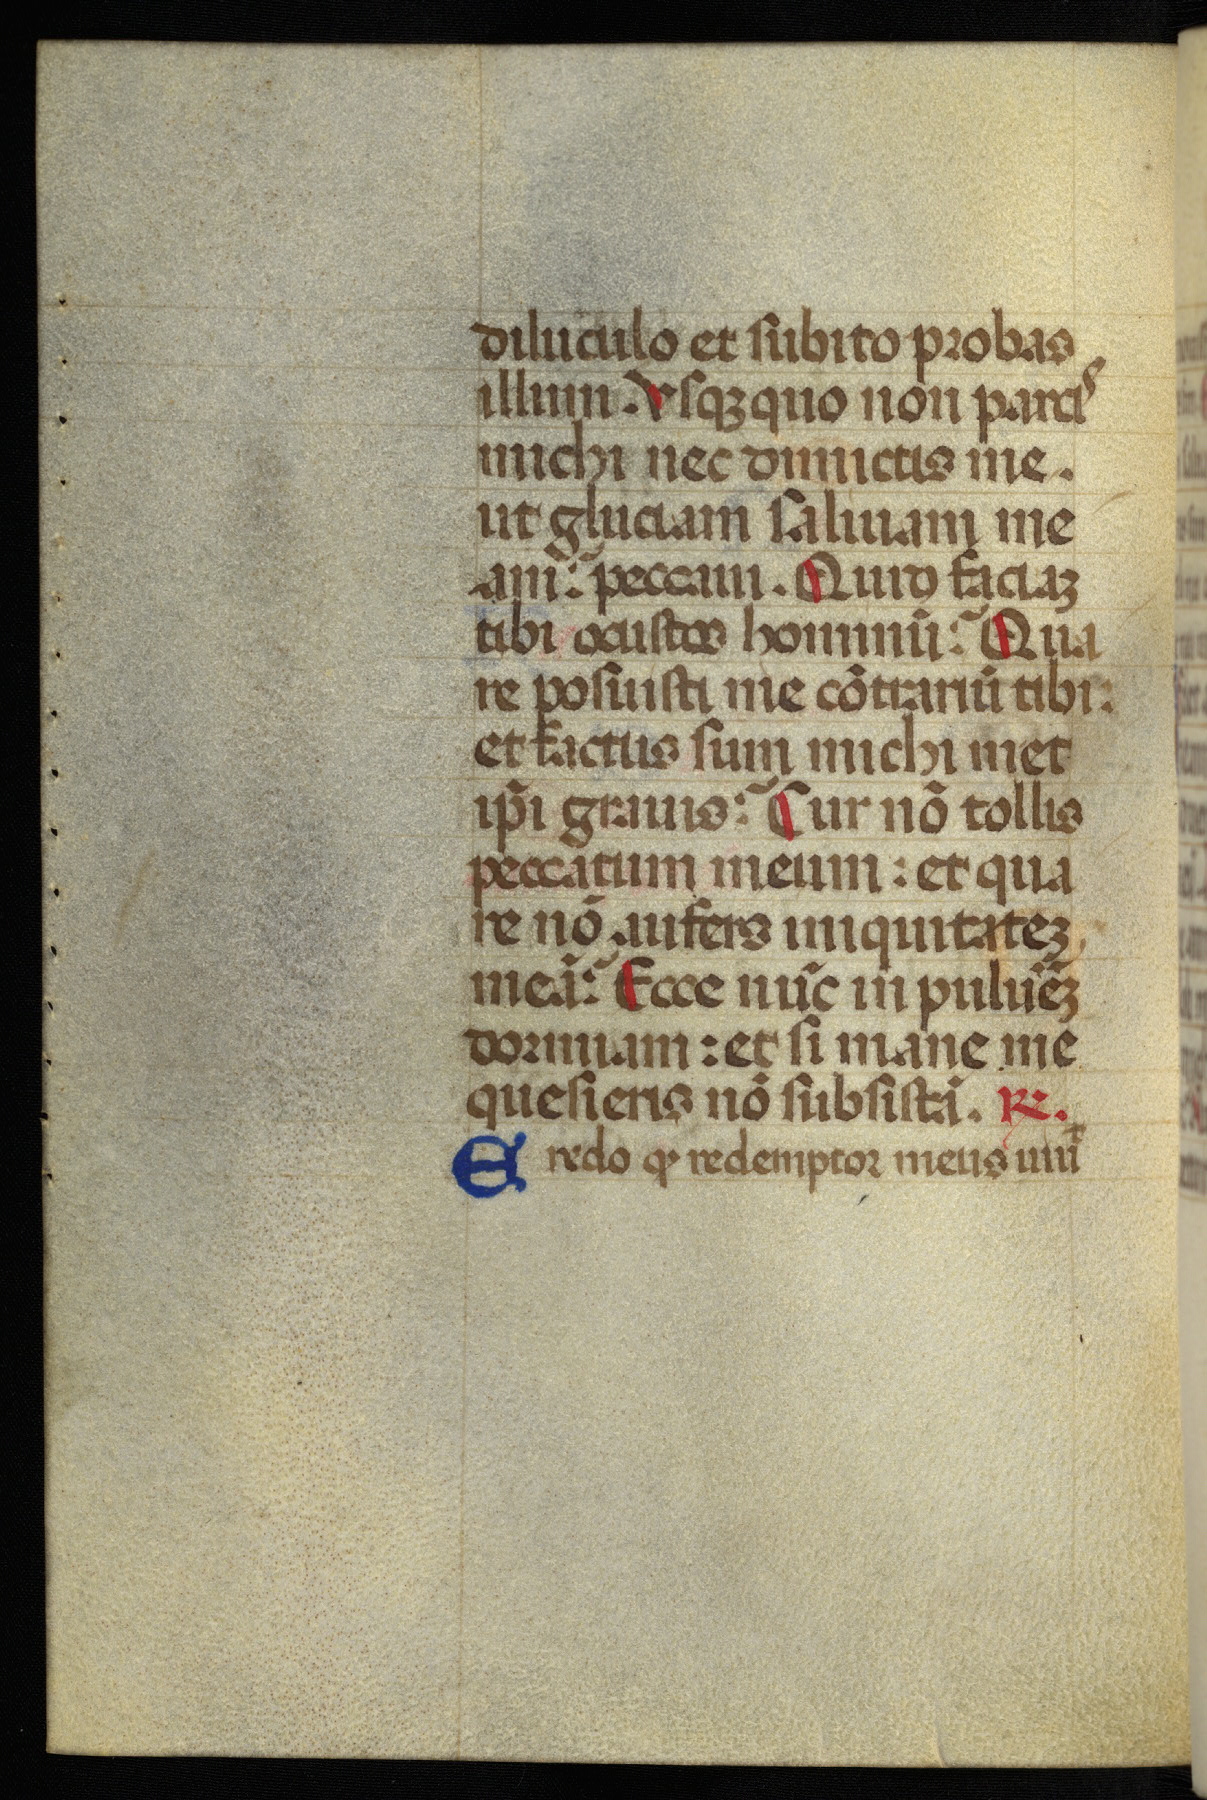 diluculo et subito probas
illum. Vsqꝫ quo non parcis
michi nec dimictis me.
ut gluciam saliuam me
am: peccaui. Quid faciaꝫ
tibi o custos hominū: Qua
re posuisti me cōtrariū tibi:
et factus sum michi met
ip̄i grauis: Cur nō tollis
peccatum meum: et qua
re nō aufers iniquitateꝫ
meā: Ecce nūc in puluēꝫ
dormiam: et si mane me
quesieris nō subsistā. R.
Credo ꝙ redemptor meus uiuit